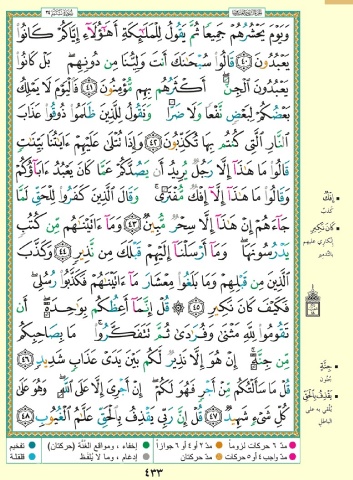 وَيَوْمَ يَحْشُرُهُمْ جَمِيعًا ثُمَّ يَقُولُ لِلْمَلَٰٓئِكَةِ أَهَٰٓؤُلَآءِ إِيَّاكُمْ كَانُوا۟
يَعْبُدُونَ ٤٠ قَالُوا۟ سُبْحَٰنَكَ أَنتَ وَلِيُّنَا مِن دُونِهِم بَلْ كَانُوا۟
يَعْبُدُونَ ٱلْجِنَّ أَكْثَرُهُم بِهِم مُّؤْمِنُونَ ٤١ فَٱلْيَوْمَ لَا يَمْلِكُ
بَعْضُكُمْ لِبَعْضٍ نَّفْعًا وَلَا ضَرًّا وَنَقُولُ لِلَّذِينَ ظَلَمُوا۟ ذُوقُوا۟ عَذَابَ
ٱلنَّارِ ٱلَّتِى كُنتُم بِهَا تُكَذِّبُونَ ٤٢ وَإِذَا تُتْلَىٰ عَلَيْهِمْ ءَايَٰتُنَا بَيِّنَٰتٍ
قَالُوا۟ مَا هَٰذَآ إِلَّا رَجُلٌ يُرِيدُ أَن يَصُدَّكُمْ عَمَّا كَانَ يَعْبُدُ ءَابَآؤُكُمْ
وَقَالُوا۟ مَا هَٰذَآ إِلَّآ إِفْكٌ مُّفْتَرًى وَقَالَ ٱلَّذِينَ كَفَرُوا۟ لِلْحَقِّ لَمَّا
جَآءَهُمْ إِنْ هَٰذَآ إِلَّا سِحْرٌ مُّبِينٌ ٤٣ وَمَآ ءَاتَيْنَٰهُم مِّن كُتُبٍ
يَدْرُسُونَهَا وَمَآ أَرْسَلْنَآ إِلَيْهِمْ قَبْلَكَ مِن نَّذِيرٍ ٤٤ وَكَذَّبَ
ٱلَّذِينَ مِن قَبْلِهِمْ وَمَا بَلَغُوا۟ مِعْشَارَ مَآ ءَاتَيْنَٰهُمْ فَكَذَّبُوا۟ رُسُلِى
فَكَيْفَ كَانَ نَكِيرِ ٤٥ ۞ قُلْ إِنَّمَآ أَعِظُكُم بِوَٰحِدَةٍ أَن
تَقُومُوا۟ لِلَّهِ مَثْنَىٰ وَفُرَٰدَىٰ ثُمَّ تَتَفَكَّرُوا۟ مَا بِصَاحِبِكُم
مِّن جِنَّةٍ إِنْ هُوَ إِلَّا نَذِيرٌ لَّكُم بَيْنَ يَدَىْ عَذَابٍ شَدِيدٍ ٤٦
قُلْ مَا سَأَلْتُكُم مِّنْ أَجْرٍ فَهُوَ لَكُمْ إِنْ أَجْرِىَ إِلَّا عَلَى ٱللَّهِ وَهُوَ عَلَىٰ
كُلِّ شَىْءٍ شَهِيدٌ ٤٧ قُلْ إِنَّ رَبِّى يَقْذِفُ بِٱلْحَقِّ عَلَّٰمُ ٱلْغُيُوبِ ٤٨
إِفْكٌ
كَذِبٌ
كَانَ نَكِيرِ
إنكاري عليهم
بالتدمير
جِنَّةٍ
جُنون
يَقْذِفُ بِالْحَقِّ
يُلقي به على
الباطل
مدّ ٦ حركات لزوماً مدّ ٢ أو ٤ أو ٦ جوازاً إخفاء، ومواقع الغُنَّة (حركتان) تفخيم
مدّ واجب ٤ أو ٥ حركات مدّ حركتان إدغام، وما لا يُلفَظ قلقلة
٤٣٣